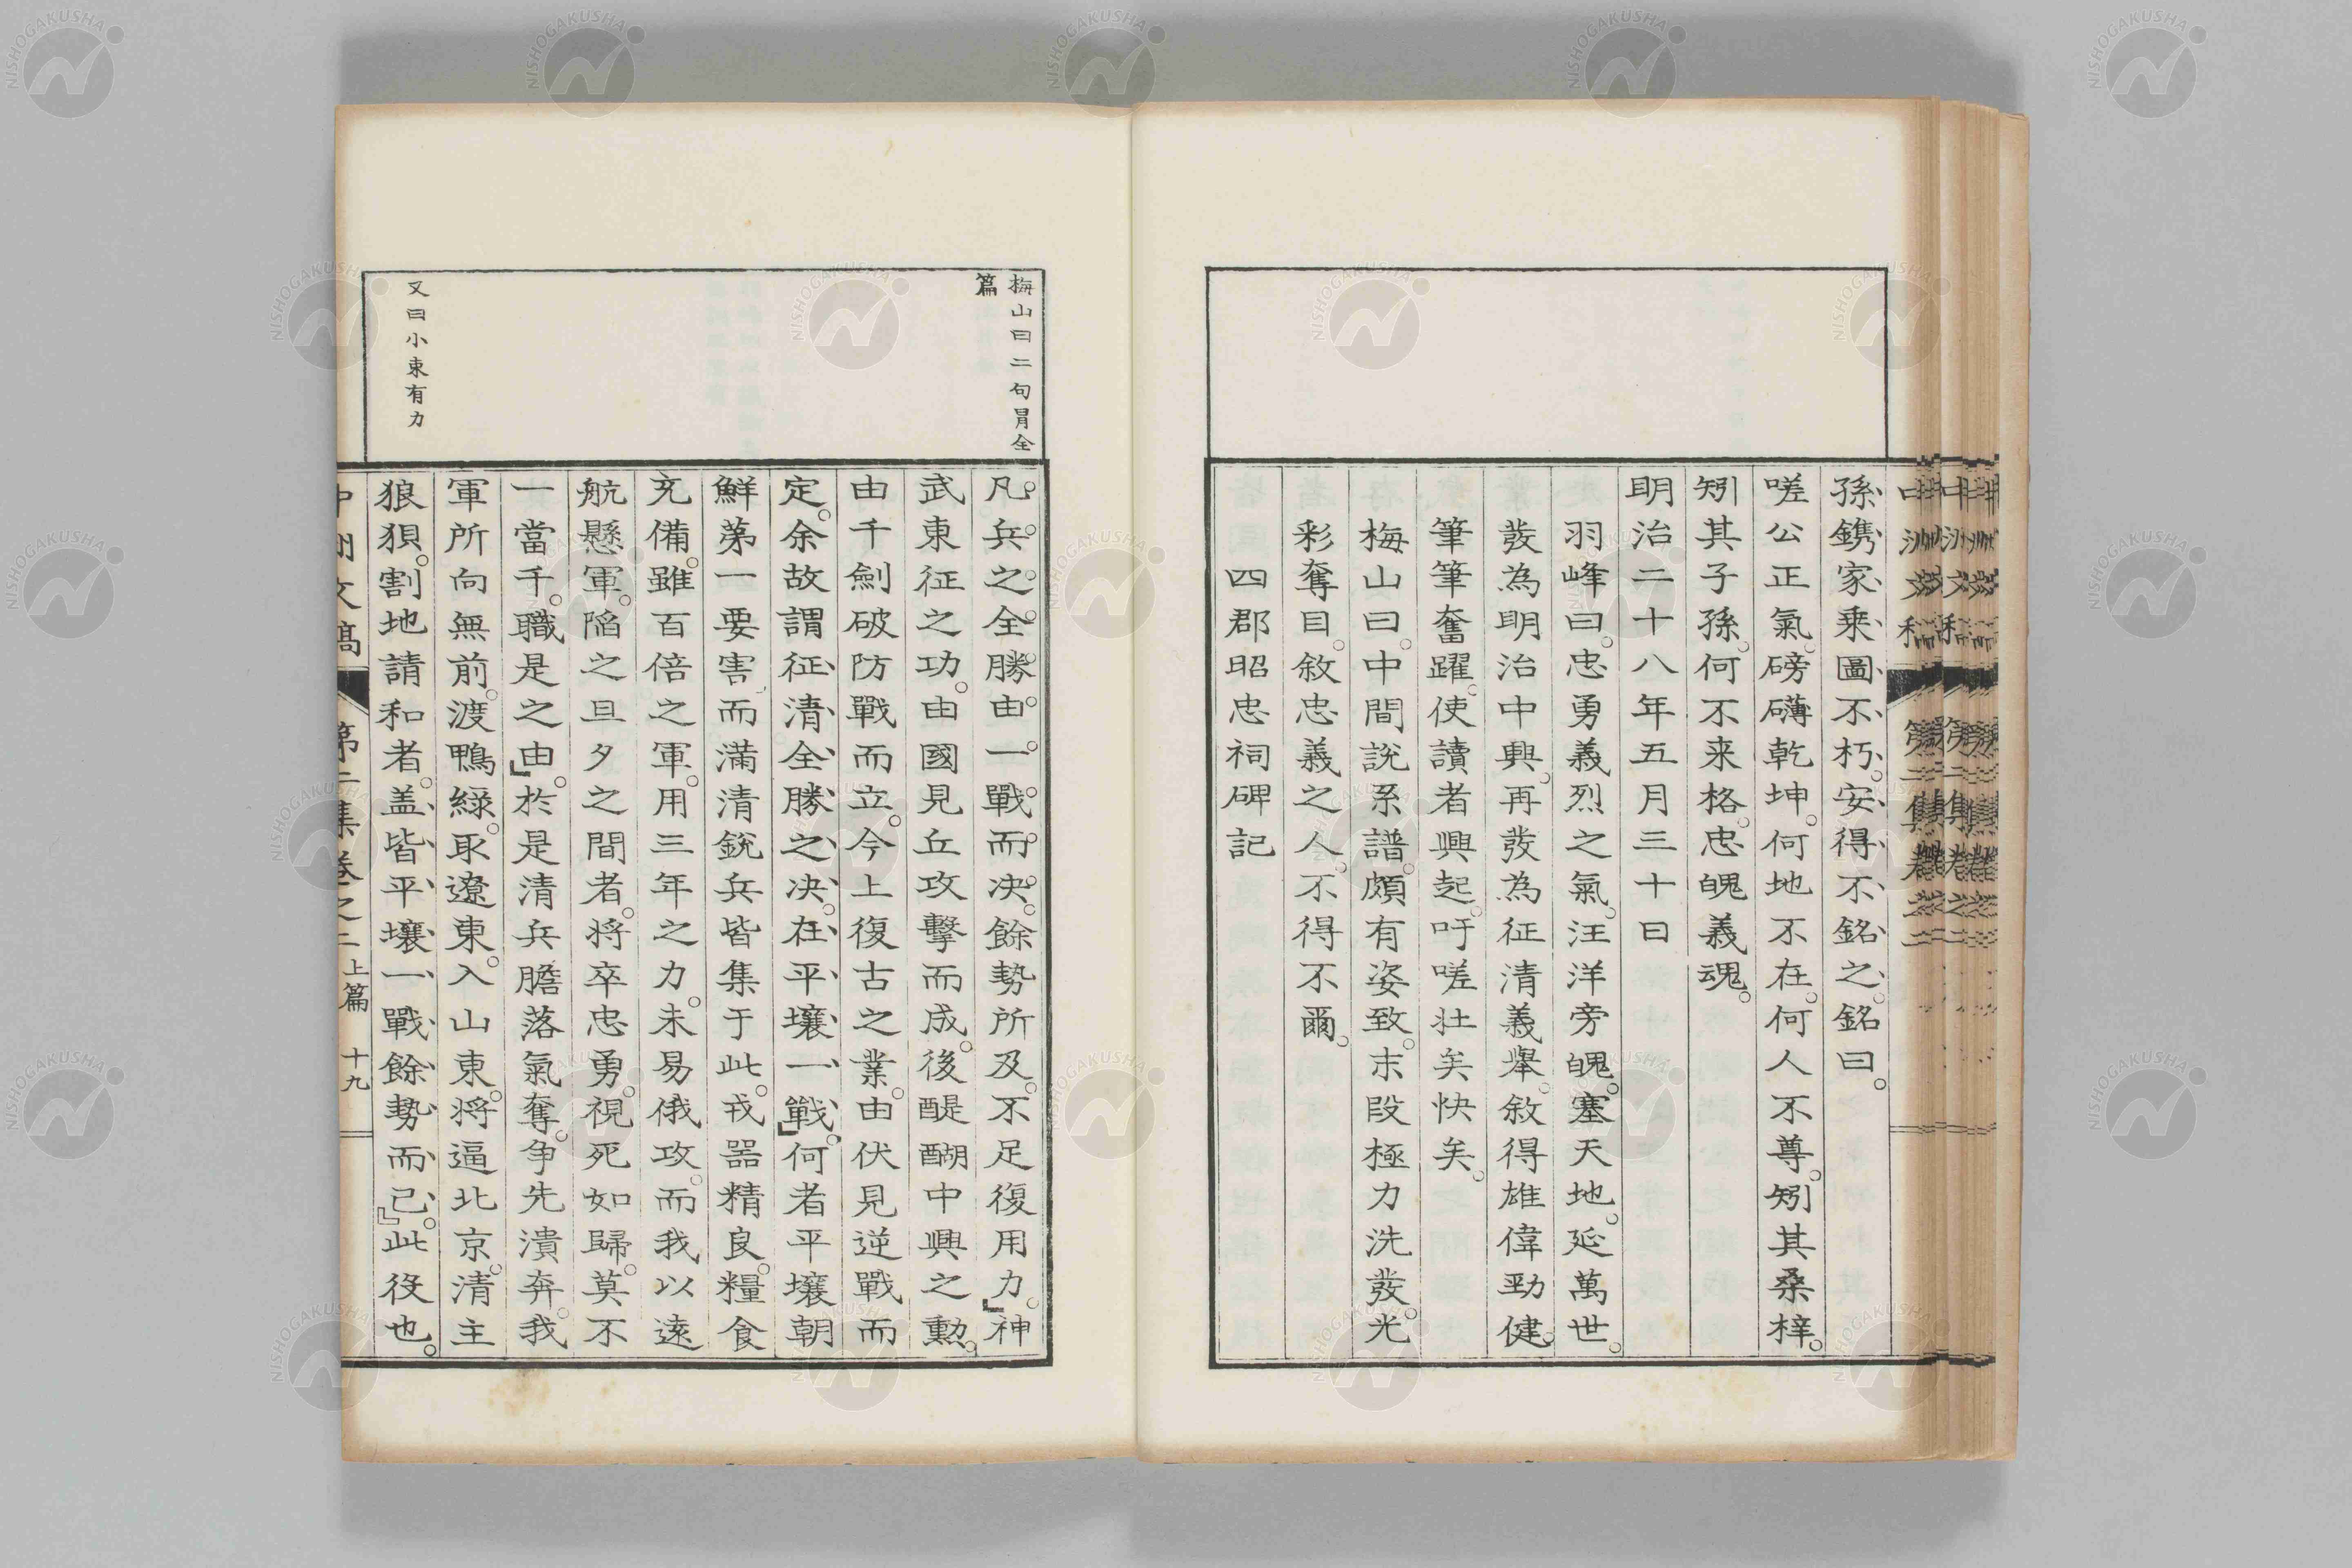 孫鐫家乘圖不朽安得不銘之銘曰。
嗟公正氣磅礴乾坤。何地不在。何人不尊。矧其桑梓。
矧其子孫。何不来格。忠魄義魂。
明治二十八年五月三十日
羽峰曰。忠勇義烈之氣。汪洋旁魄。塞天地。延萬世。
發為明治中興。再發為征清義舉。敘得雄偉勁健。
筆筆奮躍。使讀者興起。吁嗟壮矣快矣。
梅山曰。中間説系譜。頗有姿致。末段極力洗發。光
彩奪目。敘忠義之人。不得不爾。
四郡昭忠祠碑記
梅山曰二句冐全
篇
又曰小束有力
凡兵之全勝由一戰而决。餘勢所及。不足復用力。」神
武東征之功。由國見丘攻擊而成。後醍醐中興之勳。
由千劍破防戰而立。今上復古之業。由伏見逆戰而
定。余故謂征清全勝之决。在平壤一戰。」何者平壤朝
鮮第一要害。而滿清銳兵皆集于此。戎器精良。糧食
充備。雖百倍之軍。用三年之力。未易俄攻。而我以遠
航懸軍。陷之旦夕之間者。將卒忠勇。視死如歸。莫不
一當千。職是之由。」於是清兵膽落氣奪。争先潰奔。我
軍所向無前。渡鴨緑。取遼東。入山東。將逼北京。清主
狼狽。割地請和者。盖皆平壤一戰餘勢而已。」此役也。
中洲文稿 第二集卷之二 上篇 十九